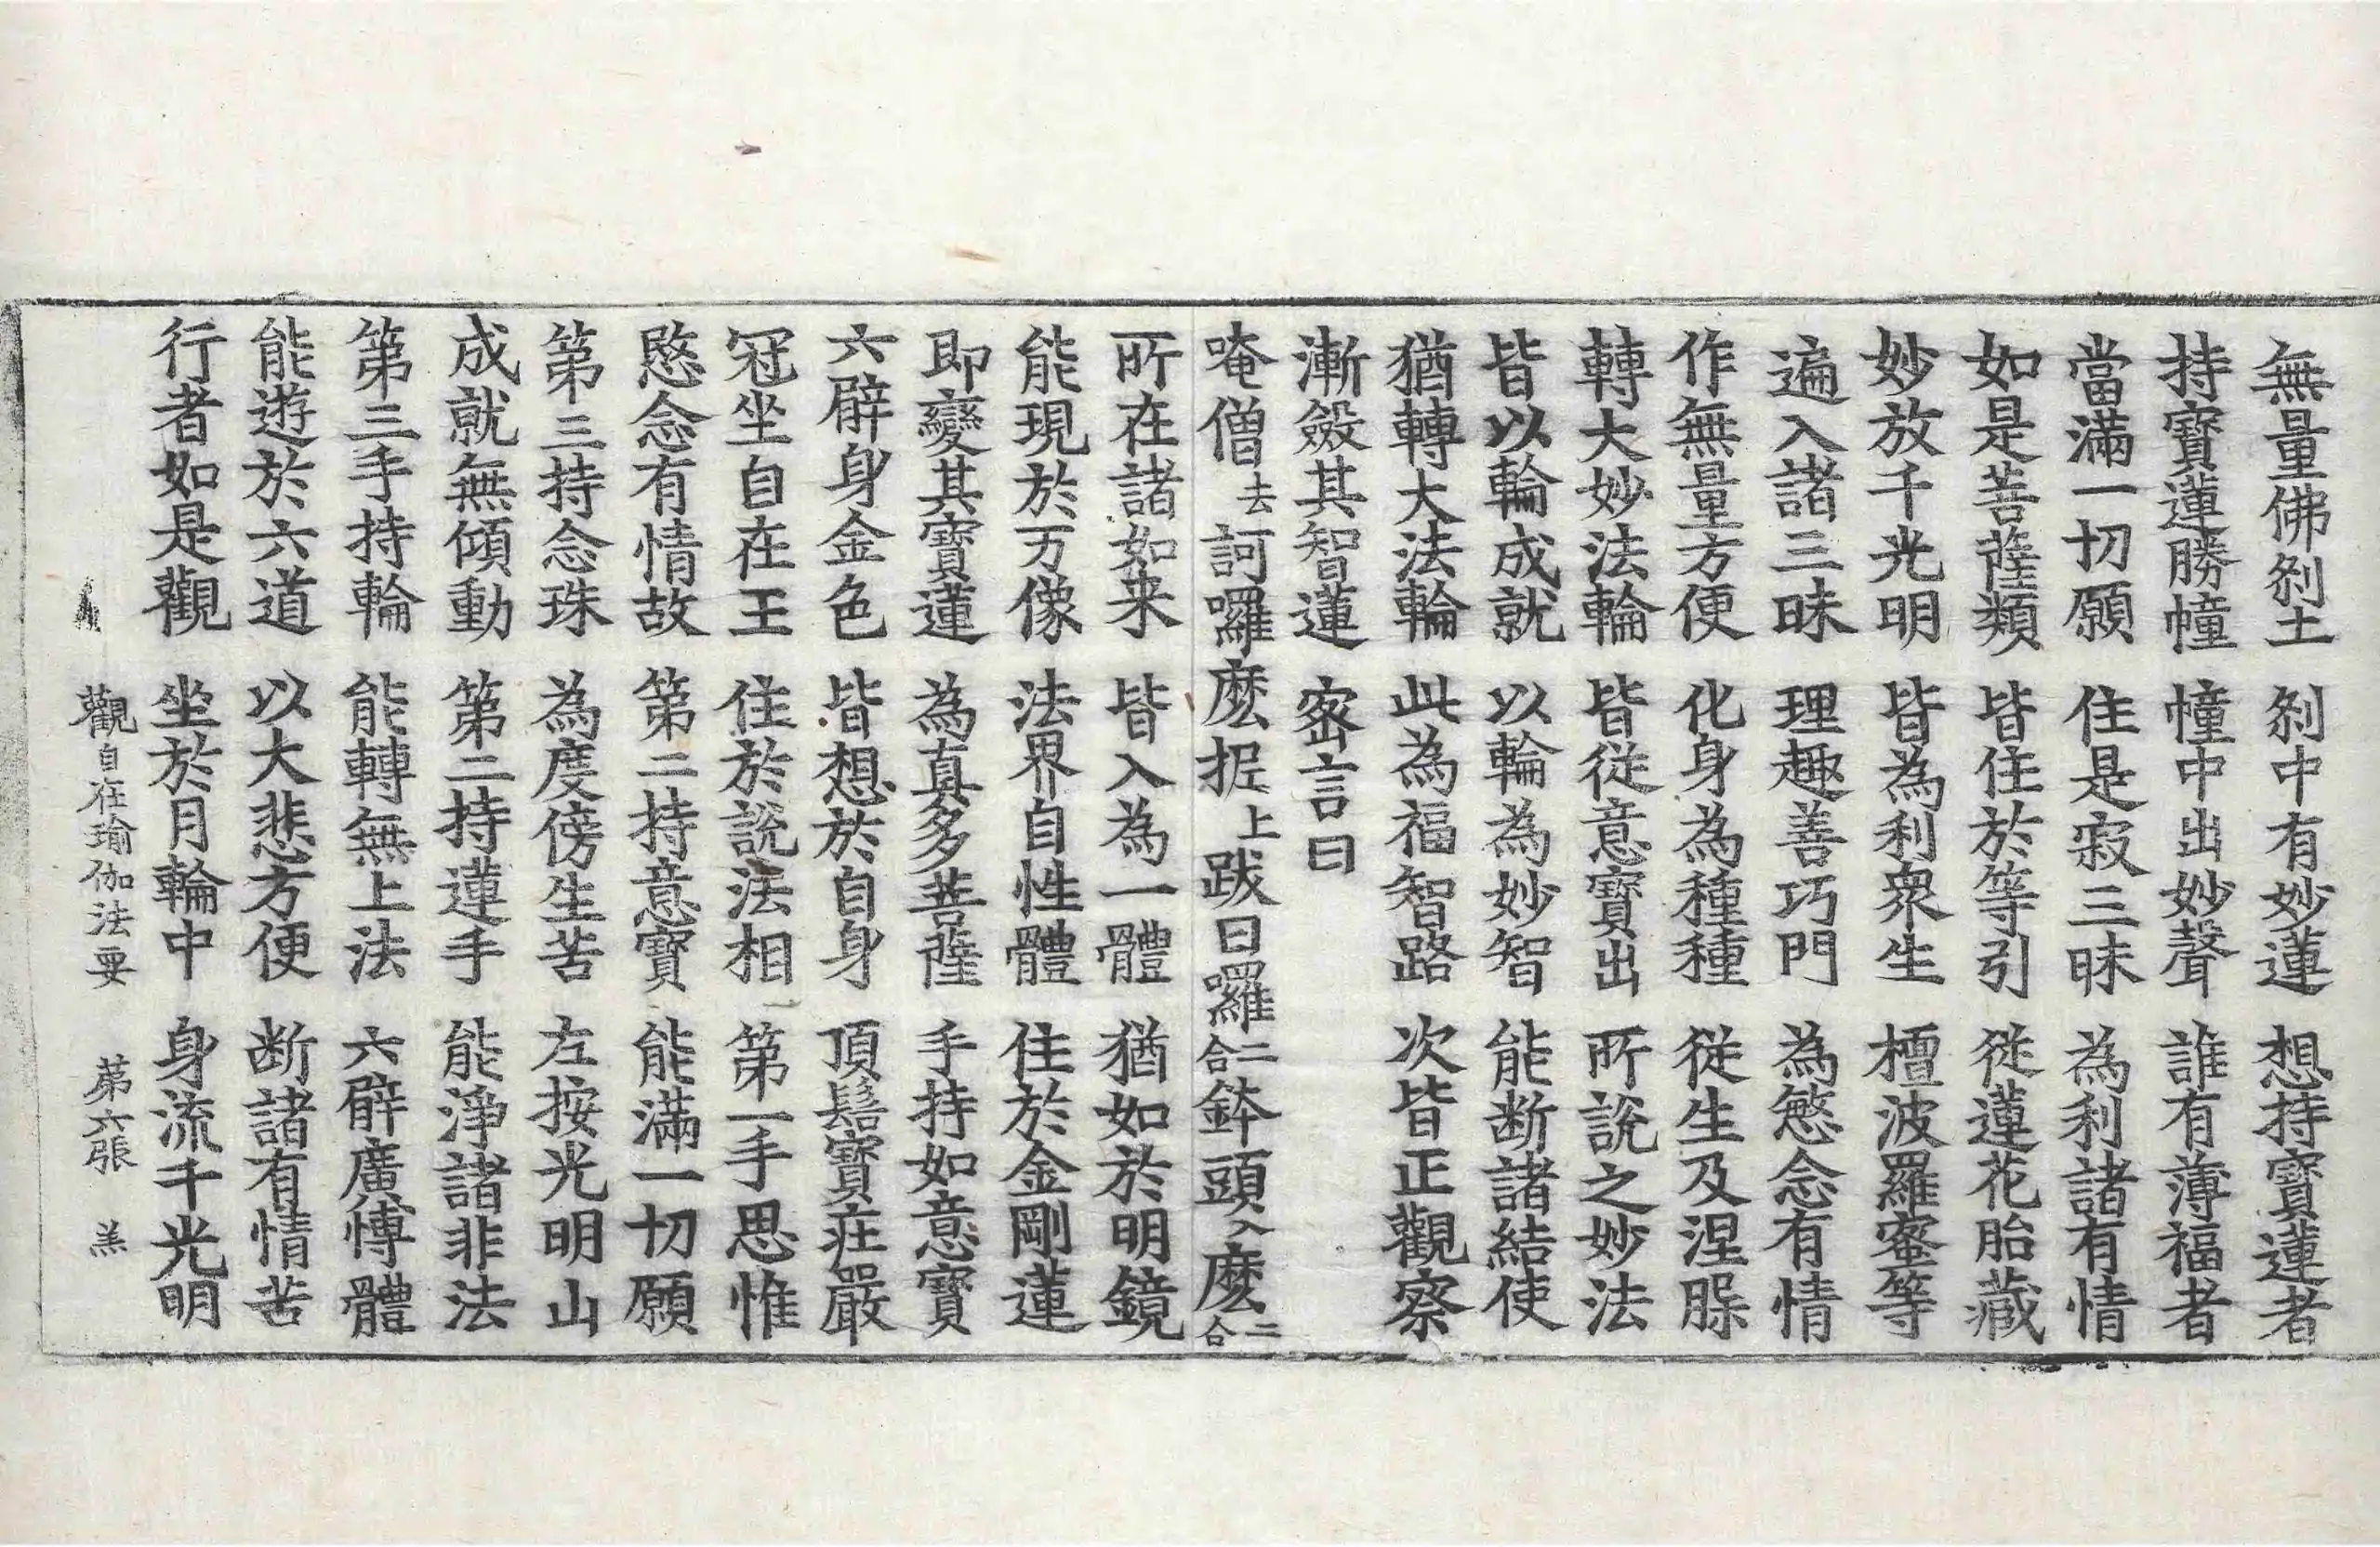 無量佛刹土 刹中有妙蓮 想持寶蓮者
持寶蓮勝幢 幢中出妙聲 誰有薄福者
當滿一切願 住是寂三昧 為利諸有情
如是菩薩類 皆住於等引 從蓮花胎藏
妙放千光明 皆為利衆生 檀波羅蜜等
遍入諸三昧 理趣善巧門 為愍念有情
作無量方便 化身為種種 從生及涅槃
轉大妙法輪 皆從意寶出 所說之妙法
皆以輪成就 以輪為妙智 能断諸結使
猶轉大法輪 此為福智路 次皆正觀察
漸斂其智蓮 密言曰
唵僧去訶囉麼抳上跋日囉二合鉢頭入麼二合
所在諸如来 皆入為一體 猶如於明鏡
能現於万像 法界自性體 住於金剛蓮
即變其寶蓮 為真多菩薩 手持如意寶
六臂身金色 皆想於自身 頂髻寶莊嚴
冠坐自在王 住於說法相 第一手思惟
愍念有情故 第二持意寶 能滿一切願
第三持念珠 為度傍生苦 左按光明山
成就無傾動 第二持蓮手 能淨諸非法
第三手持輪 能轉無上法 六臂廣博體
能遊於六道 以大悲方便 断諸有情苦
行者如是觀 坐於月輪中 身流千光明
觀自在瑜伽法要 苐六張 羔